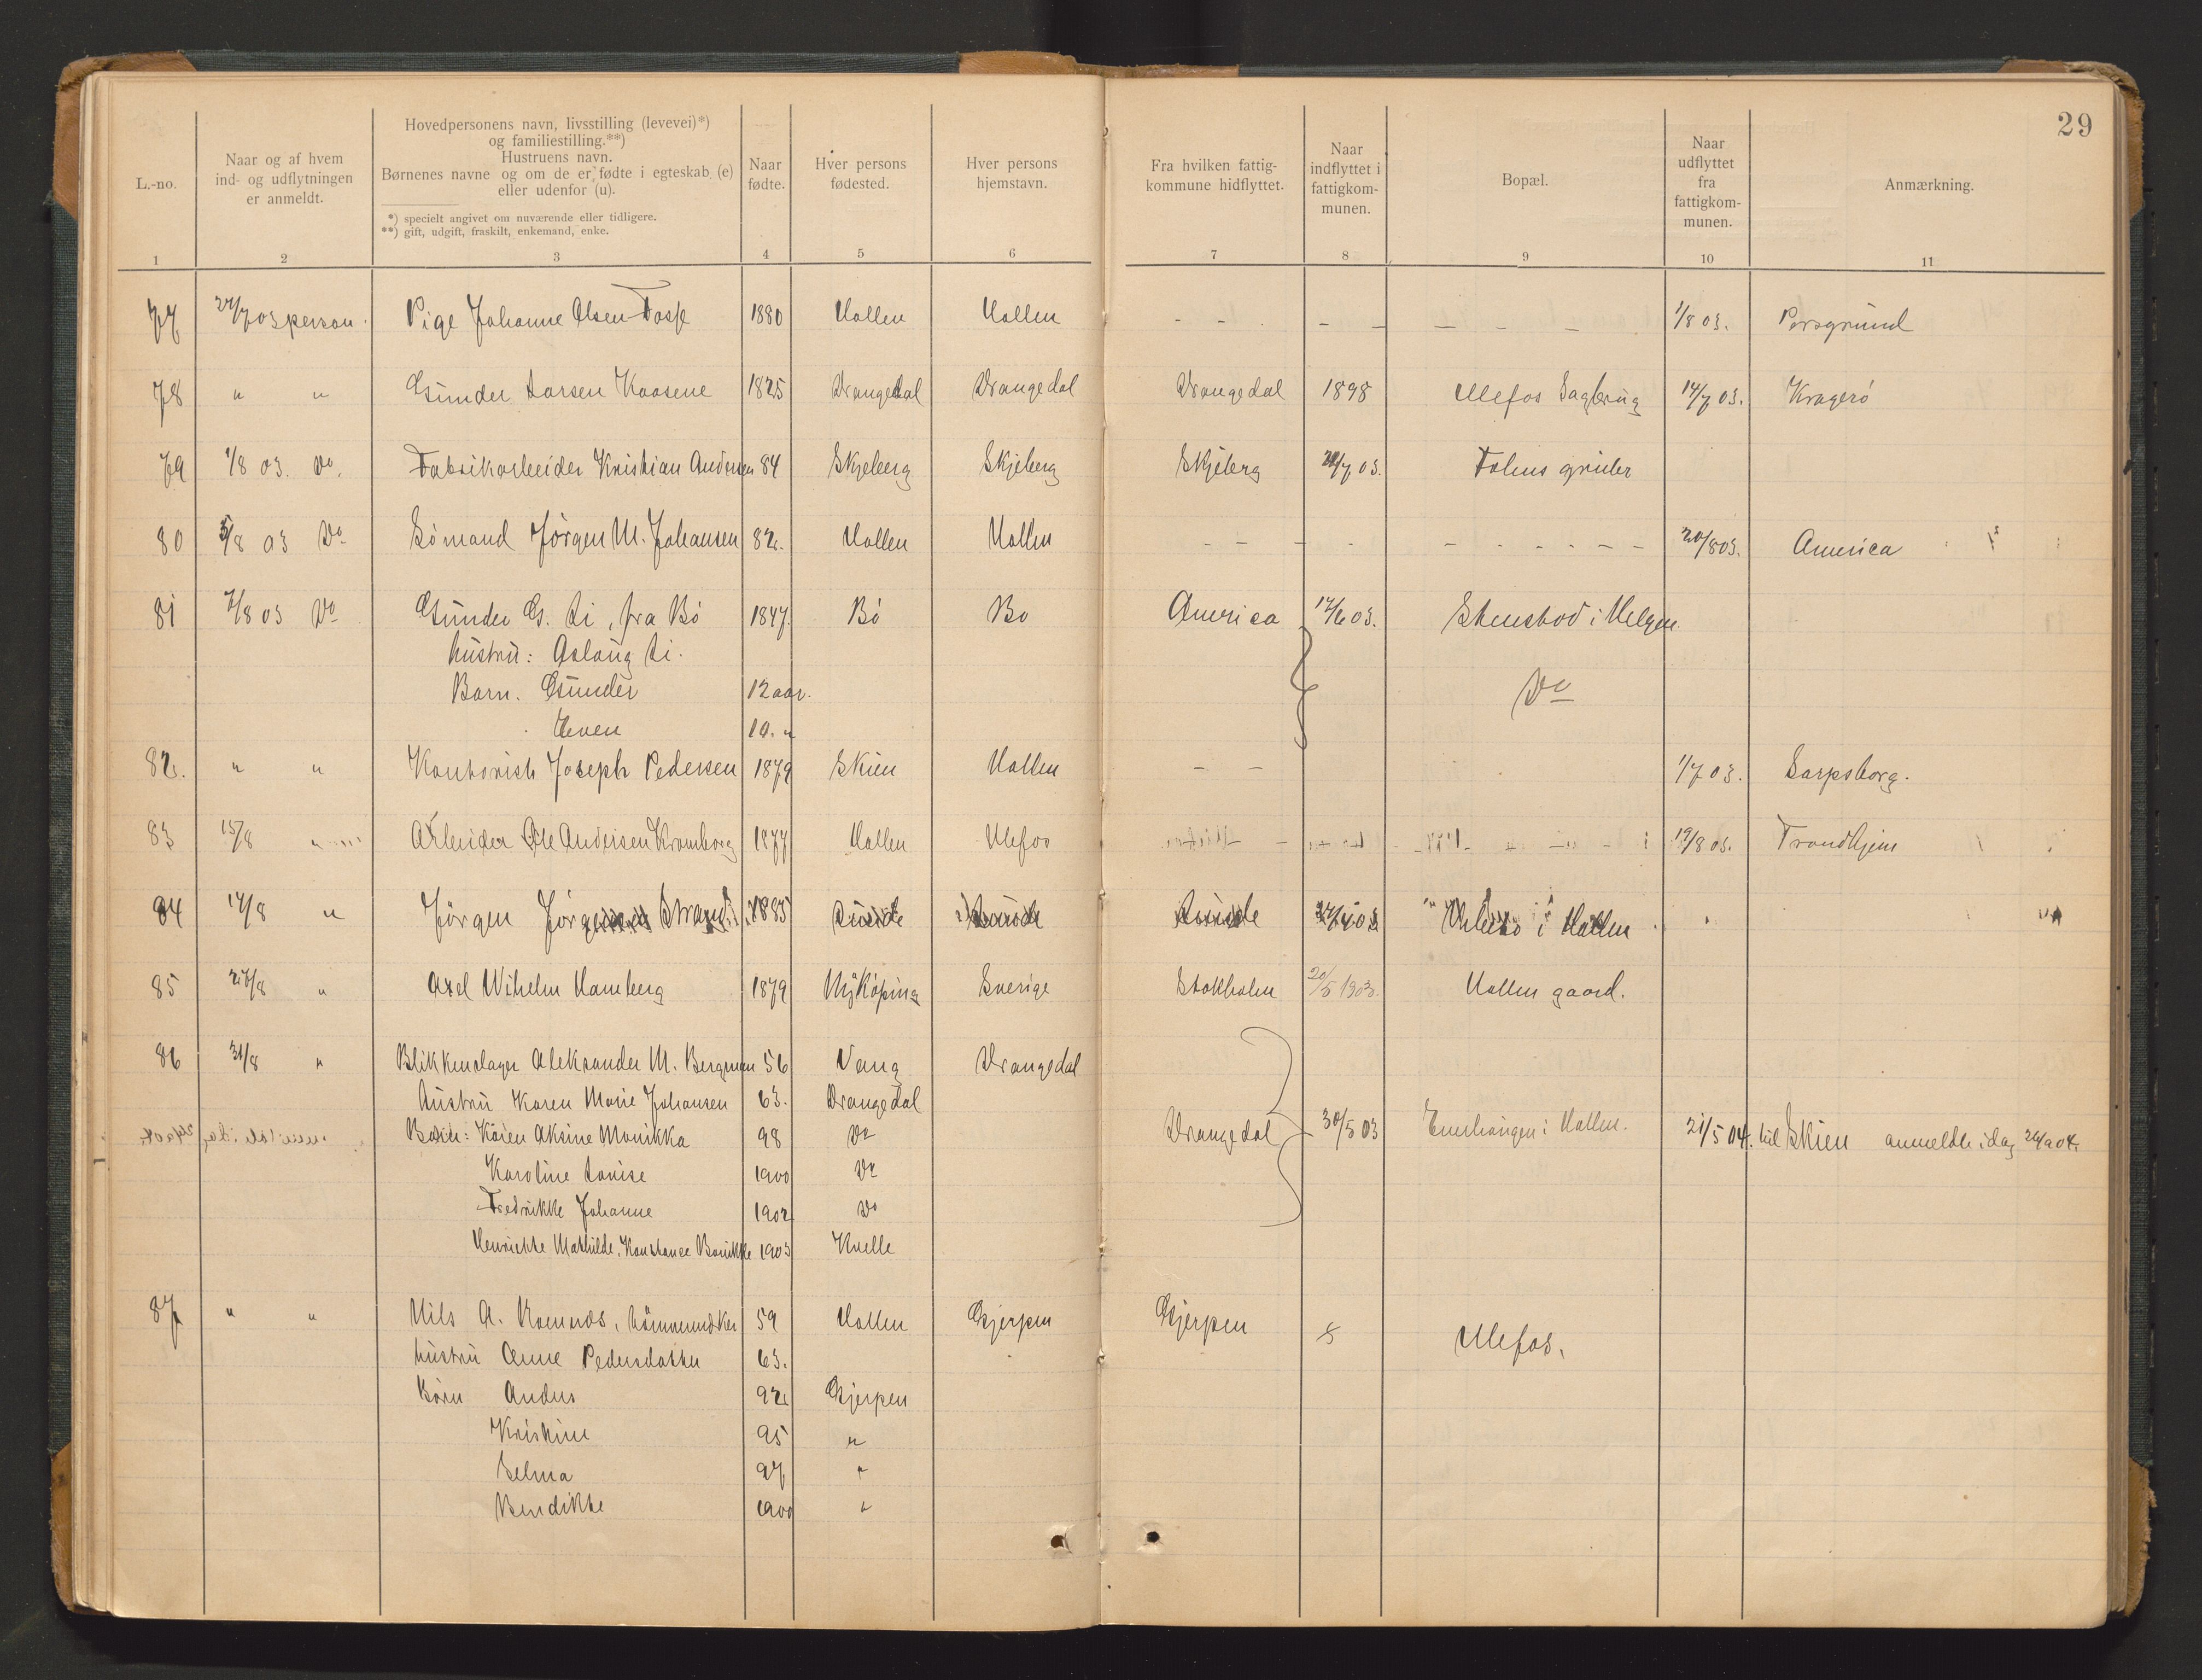 29
L.-no.
Naar og af hvem ind- og udflytningen er anmeldt.
Hovedpersonens navn, livsstilling (levevei)*) og familiestilling.**)
Hustruens navn.
Børnenes navne og om de er fødte i egteskab (e) eller udenfor (u).
*) specielt angivet om nuværende eller tidligere.
**) gift, udgift, fraskilt, enkemand, enke.
Naar fødte.
Hver persons fødested.
Hver persons hjemstavn.
Fra hvilken fattigkommune hidflyttet.
Naar indflyttet i fattigkommunen.
Bopæl.
Naar udflyttet fra fattigkommunen.
Anmærkning.
1 2 3 4 5 6 7 8 9 10 11
77 24/7 03 person. Pige Johanne Olsen Fosse 1880 Hollen Hollen - - - - - - - 1/8 03. Porsgrund
78 " " Gunder Larsen Kaasene 1825 Drangedal Drangedal Drangedal 1898 Ulefos Sagbrug 14/7 03. Kragerö
79 1/8 03. Do. Fabrikarbeider Kristian Andersen 84 Skjeberg Skjeberg Skjeberg 7 03. Fehns gruber
80 5/8 03 Do Sömand Jörgen M. Johansen 82. Hollen Hollen - - - - - - - - - - 20/8 03. America
81 7/8 03 Do Gunder G. Li, fra Bö 1847. Bö Bö America 17/6 03. Stenstod i Helgen
hustru: Aslaug Li.
Barn. Gunder 12 aar. Do
Even 10. "
82. " " Kontorist Joseph Pedersen 1879 Skien Hollen - - 1/7 03. Sarpsborg.
83 15/8 " Arbeider Ole Andersen Kromborg 1877 Hollen Ulefos 19/8 03. Trondhjem
84 14/8 " Jörgen Strand 1885 i Hollen
85 27/8 " Axel Wilhelm Hamberg 1879 Nyköping Sverige Stokholm 20/5 1903. Hollen gaard.
86 31/8 " Blikkenslager Aleksander M. Bergman 56 Vang Drangedal
Hustru Karen Marie Johansen 63. Drangedal
Börn: Karen Aksine Monikka 98 Do Drangedal 30/5 03 Enerhaugen i Hollen. 21/5 04. til Skien anmeldt idag 04.
Karoline Lovise 1900 Do
Fredrikke Johanne 1902 Do
Henrikke Mathilde, Konstance 1903
87 " " Nils A. 59 Hollen Gjerpen Gjerpen Ulefos.
hustru Anne Pedersdatter 63.
Börn Anders 92 Gjerpen
Kristine 95 "
Selma 97 "
Bendikke 1900 "